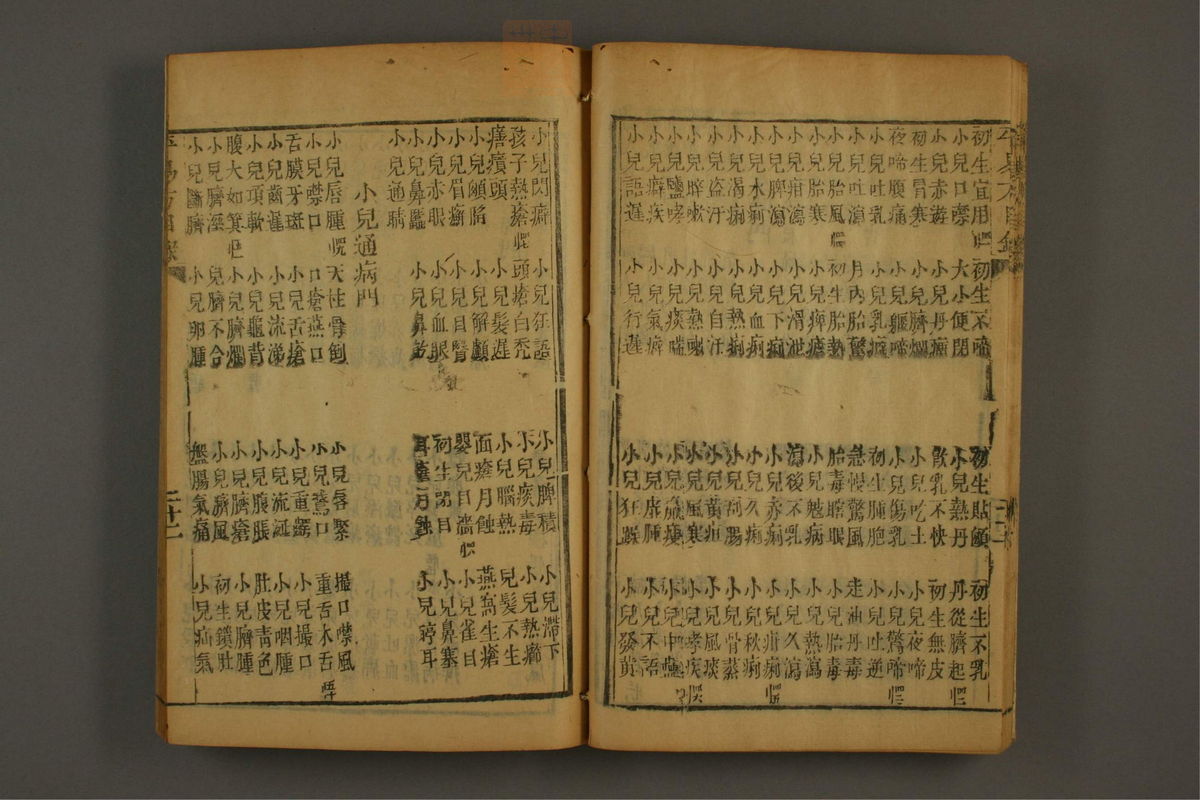 初生宜用 初生不啼 初生貼顱 初生不乳
小兒口噤 大小便閉 小兒熱丹 丹從臍起
小兒赤游 小兒丹瘤 散乳不快 初生無皮
初生冒 小兒臍爛 小兒吃土 小兒夜啼
夜啼腹痛 小兒軀啼 小兒傷乳 小兒驚啼
小兒吐乳 小兒乳癖 初生肺胞 小兒吐逆
小兒吐瀉 月內胎驚 急慢驚風 走油丹毒
小兒胎風 初生胎熱 胎毒瞎眼 小兒胎毒
小兒胎寒 小兒瘧 小兒魃病 小兒熱瀉
小兒疳瀉 小兒滑泄 瀉後不乳 小兒久瀉
小兒脾瀉 小兒下痢 小兒赤痢 小兒疳痢
小兒水痢 小兒血痢 小兒久痢 小兒秋痢
小兒渴痢 小兒熱痢 小兒腸 小兒骨蒸
小兒盜汗 小兒自汗 小兒黃疸 小兒風痰
小兒嗽 小兒熱喘 小兒風寒 小兒哮疾
小兒鹽哮 小兒痰喘 小兒 小兒中蠱
小兒癖疾 小兒氣癖 小兒腫 小兒不語
小兒語遲 小兒行遲 小兒狂躁 小兒發黃
小兒閃癖 小兒狂語 小兒脾積 小兒滯下
孩子熱瘡 頭瘡白禿 小兒痰毒 小兒熱癤
癀頭 小兒髮遲 小兒腦熱 兒髮不生
小兒顱陷 小兒解顱 面瘡月蝕 燕窩生瘡
小兒眉癬 小兒目瞖 嬰兒目濇 小兒雀目
小兒赤眼 小兒血眼 初生閉目 小兒鼻塞
小兒鼻 小兒鼻 耳瘡月蝕 小兒聤耳
小兒通睛
小兒通病門
小兒唇腫 天柱骨倒 小兒唇緊 撮口噤風
小兒噤口 口瘡燕口 小兒鵞口 重舌木舌
舌膜牙斑 小兒舌瘡 小兒重齶 小兒撮口
小兒齒遲 小兒流涕 小兒流涎 小兒咽腫
小兒項軟 小兒龜背 小兒腹脹 肚皮青色
腹大如箕 小兒臍爛 小兒臍瘡 小兒臍腫
小兒臍溼 兒臍不合 小兒臍風 初生鎖肚
小兒斷臍 小兒卵腫 盤腸氣痛 小兒疝氣